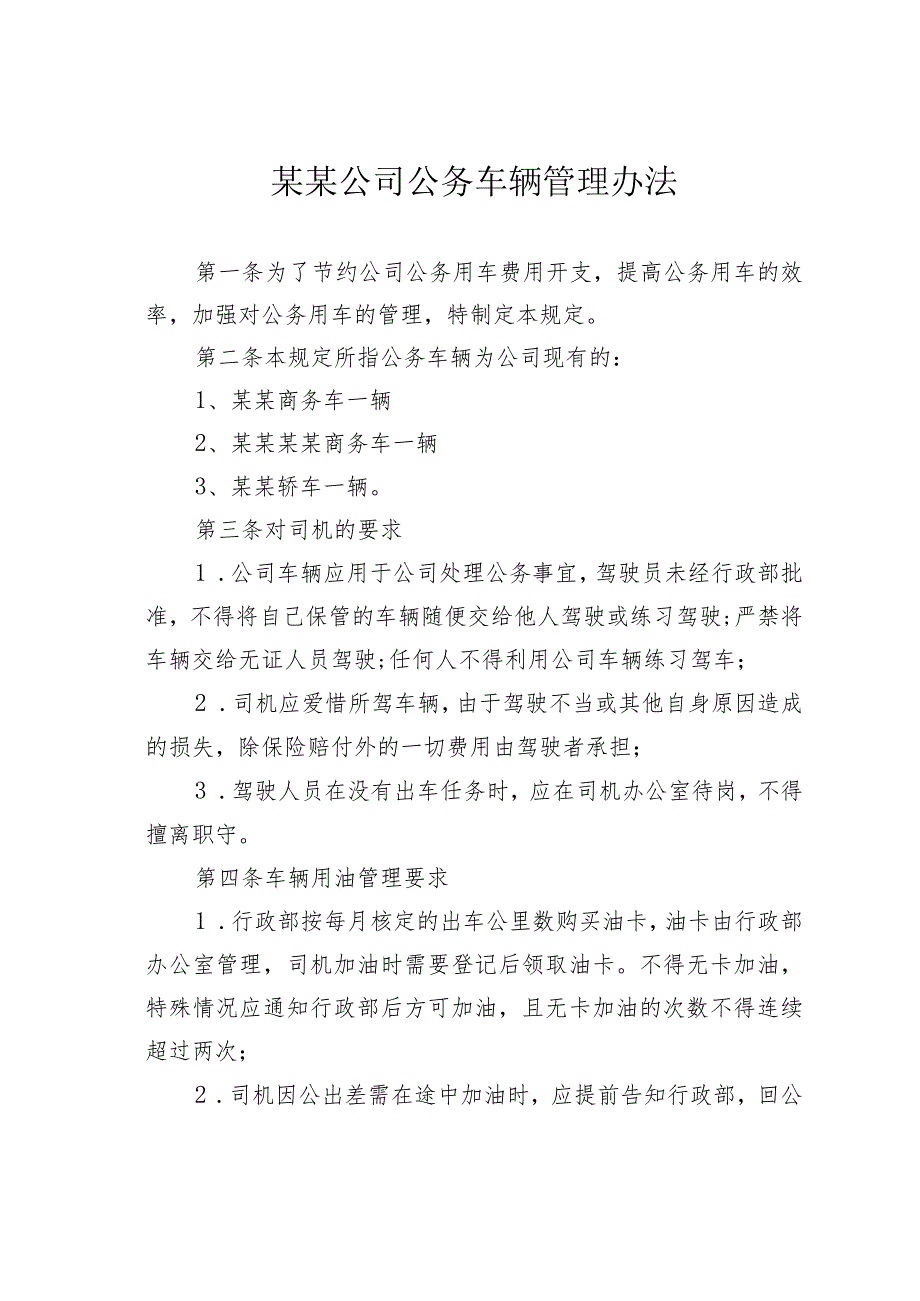 某某公司公务车辆管理办法
第一条为了节约公司公务用车费用开支，提高公务用车的效
率，加强对公务用车的管理，特制定本规定。
第二条本规定所指公务车辆为公司现有的：
1、某某商务车一辆
2、某某某某商务车一辆
3、某某轿车一辆。
第三条对司机的要求
1.公司车辆应用于公司处理公务事宜，驾驶员未经行政部批
准，不得将自己保管的车辆随便交给他人驾驶或练习驾驶;严禁将
车辆交给无证人员驾驶;任何人不得利用公司车辆练习驾车；
2.司机应爱惜所驾车辆，由于驾驶不当或其他自身原因造成
的损失，除保险赔付外的一切费用由驾驶者承担；
3.驾驶人员在没有出车任务时，应在司机办公室待岗，不得
擅离职守。
第四条车辆用油管理要求
1.行政部按每月核定的出车公里数购买油卡，油卡由行政部
办公室管理，司机加油时需要登记后领取油卡。不得无卡加油，
特殊情况应通知行政部后方可加油，且无卡加油的次数不得连续
超过两次；
2.司机因公出差需在途中加油时，应提前告知行政部，回公